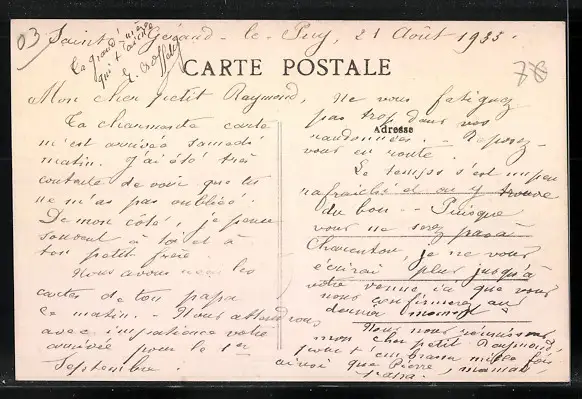 03 Saint Gérand-le-Puy, 21 Août 1935.
Ta grand'mère
qui t'aime
CARTE POSTALE
78
Mon cher petit Raymond,
Ta charmante carte
m'est arrivée samedi
matin. J'ai été très
contente de voir que tu
ne m'as pas oubliée.
De mon côté, je pense
souvent à toi et à
ton petit frère.
Nous avons reçu les
cartes de ton papa
ce matin. - Nous attendons
avec impatience votre
arrivée pour le 1er
Septembre.
Adresse
Ne vous fatiguez
pas trop dans vos
randonnées. - Reposez-
vous en route.
Le temps s'est un peu
rafraîchi et on y trouve
du bon -- Puisque
vous ne serez pas à
Charenton, je ne vous
écrirai plus jusqu'à
votre venue ici que vous
nous confirmerez au
dernier moment.
Nous nous réunissons,
mon cher petit Raymond,
pour t'embrasser mille fois
ainsi que Pierre, maman
papa.